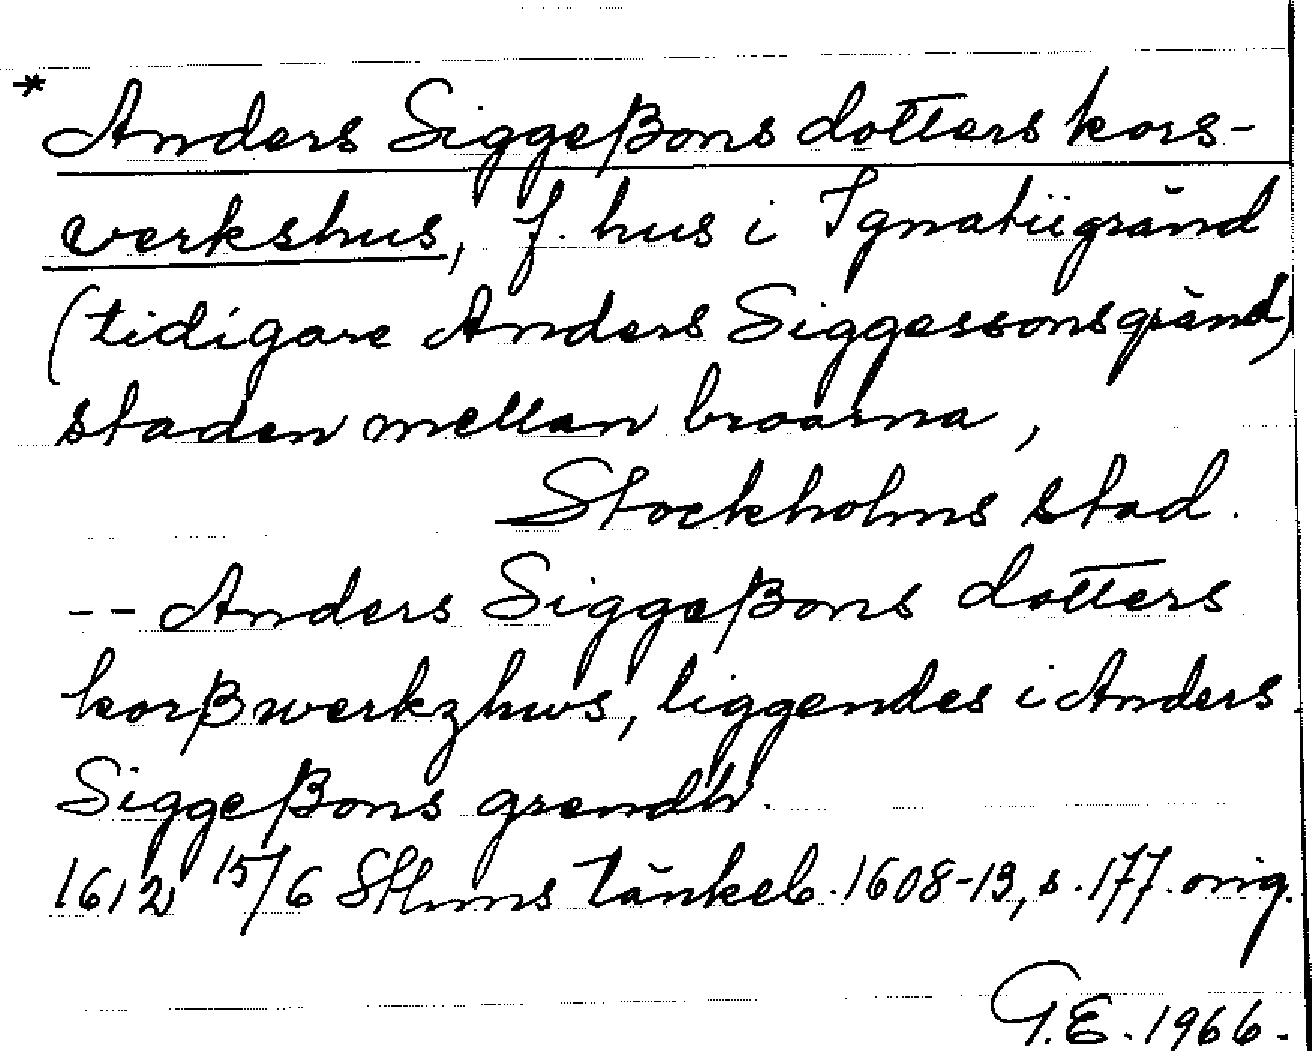 * Anders Siggeßons dotters kors-
verkshus, f. hus i Ignatiigränd
(tidigare Anders Siggessonsgränd)
staden mellan broarna,
Stockholms stad.
-- Anders Siggeßons dotters
korßwerkzhws, liggendes i Anders
Siggeßons grendh.
1612 15/6 Sthms tänkeb. 1608-13, s. 177. orig.
G.E. 1966.